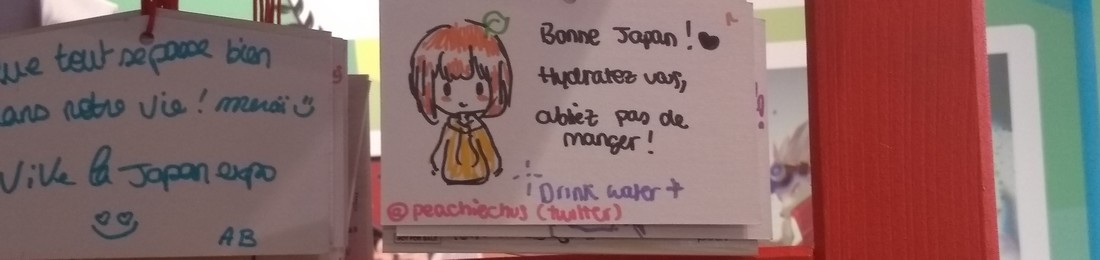 tout se passe bien
notre vie ! merci
Vive la Japan expo
AB
Bonne Japan !
Hydratez vous,
abliez pas de
manger !
Drink water +
@peachiechus (twitter)